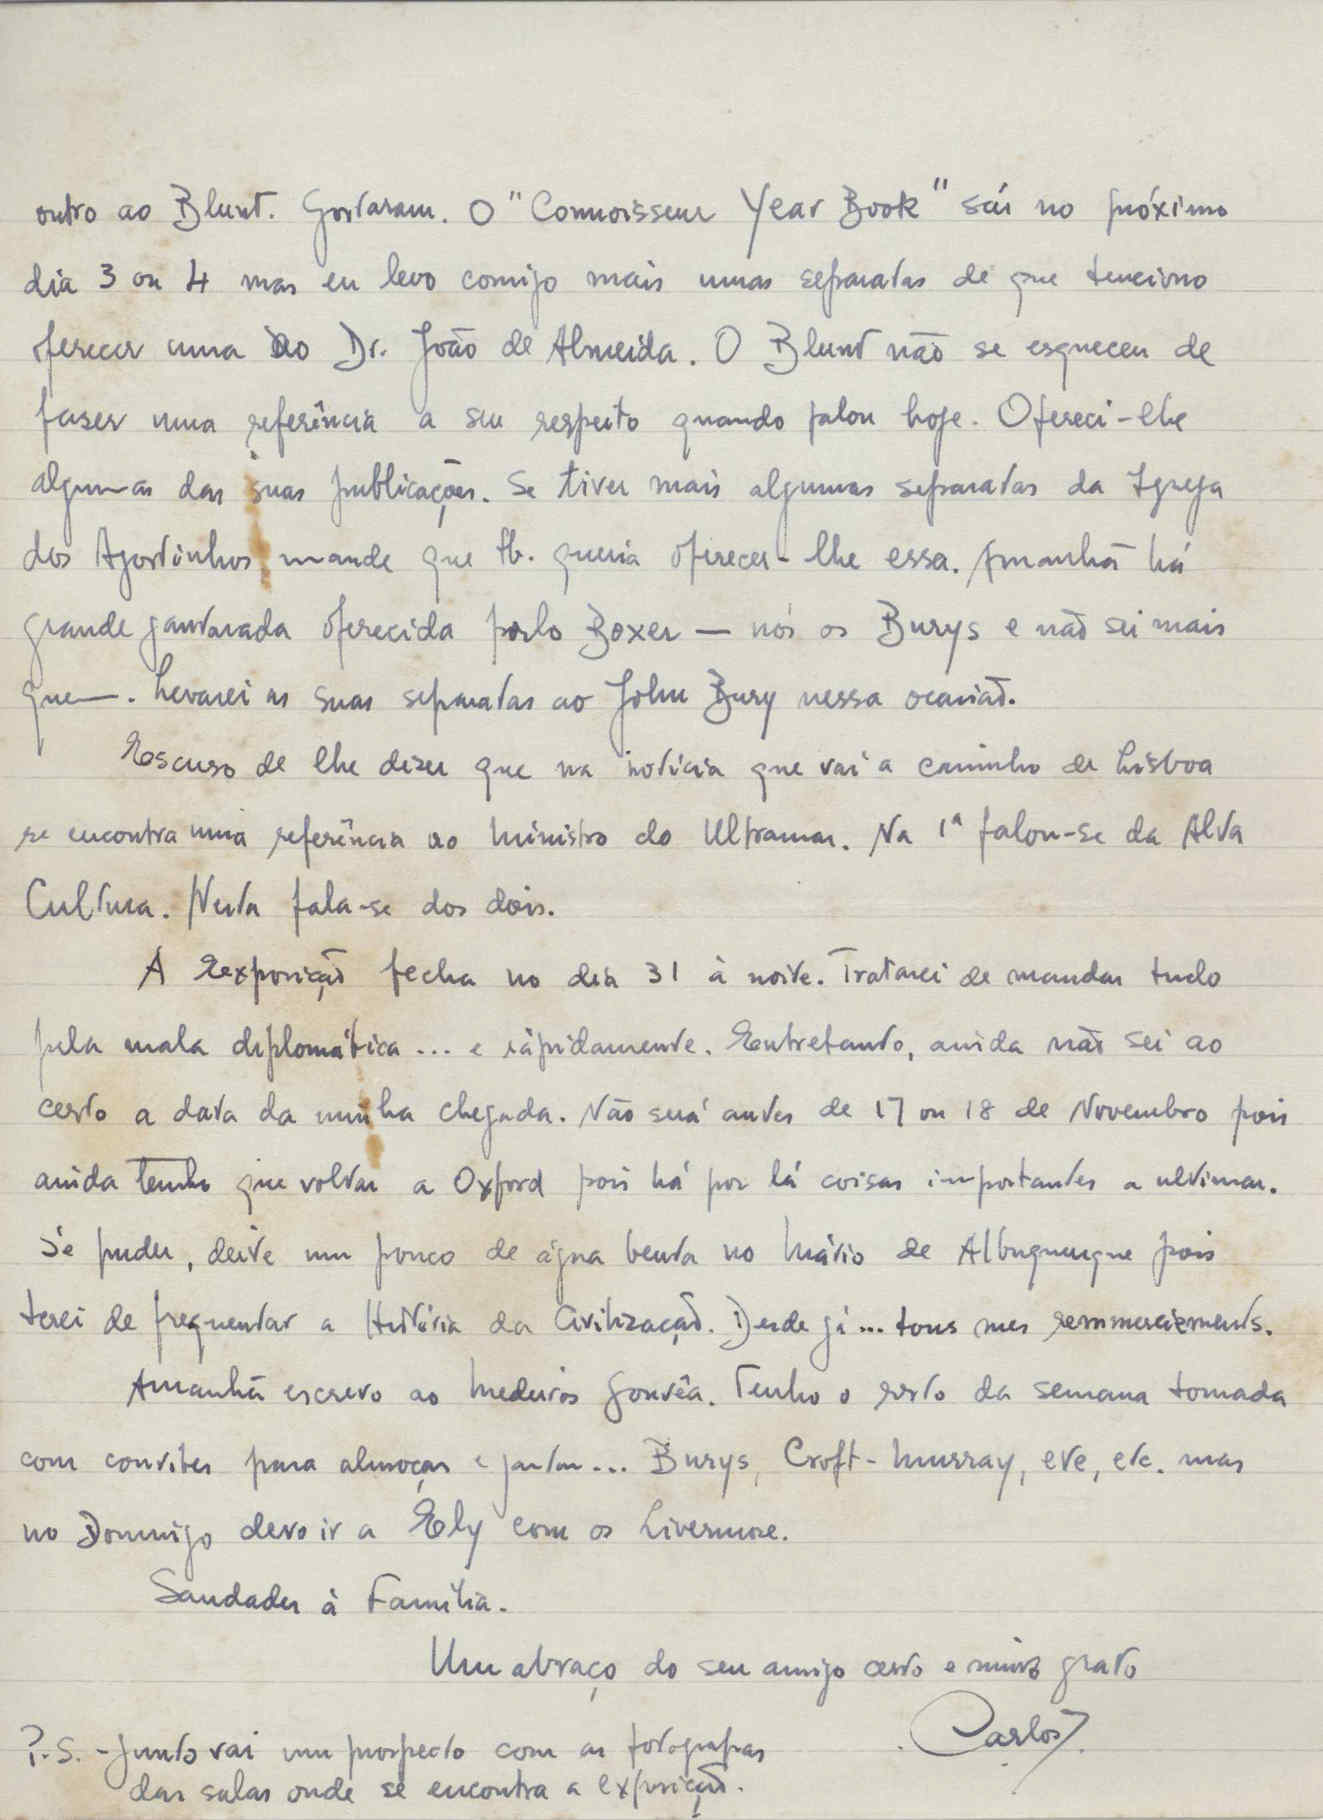 outro ao Blunt. Gostaram. O "Connoisseur Year Book" sái no próximo
dia 3 ou 4 mas eu levo comigo mais umas separatas de que tenciono
oferecer uma ao Dr. João de Almeida. O Blunt não se esqueceu de
fazer uma referência a seu respeito quando falou hoje. Ofereci-lhe
algumas das suas publicações. Se tiver mais algumas separatas da Igreja
dos Agostinhos mande que tb. queria oferecer-lhe essa. Amanhã há
grande jantarada oferecida pelo Boxer — nós os Burys e não sei mais
quem. Levarei as suas separatas ao John Bury nessa ocasião.
Escuso de lhe dizer que na notícia que vai a caminho de Lisboa
se encontra uma referência ao Ministro do Ultramar. Na 1ª falou-se da Alta
Cultura. Nesta fala-se dos dois.
A Exposição fecha no dia 31 à noite. Tratarei de mandar tudo
pela mala diplomática ... e ràpidamente. Entretanto, ainda não sei ao
certo a data da minha chegada. Não será antes de 17 ou 18 de Novembro pois
ainda tenho que voltar a Oxford pois há por lá coisas importantes a ultimar.
Se puder, deite um pouco de água benta no Mário de Albuquerque pois
terei de frequentar a História da Civilização. Desde já ... tous mes remmerciements.
Amanhã escrevo ao Medeiros Gouvêa. Tenho o resto da semana tomada
com convites para almoçar e jantar ... Burys, Croft-Murray, etc, etc. mas
no Domingo devo ir a Ely com os Livermore.
Saudades à Família.
Um abraço do seu amigo certo e muito grato
Carlos
P.S. - Junto vai um prospecto com as fotografias
das salas onde se encontra a exposição.